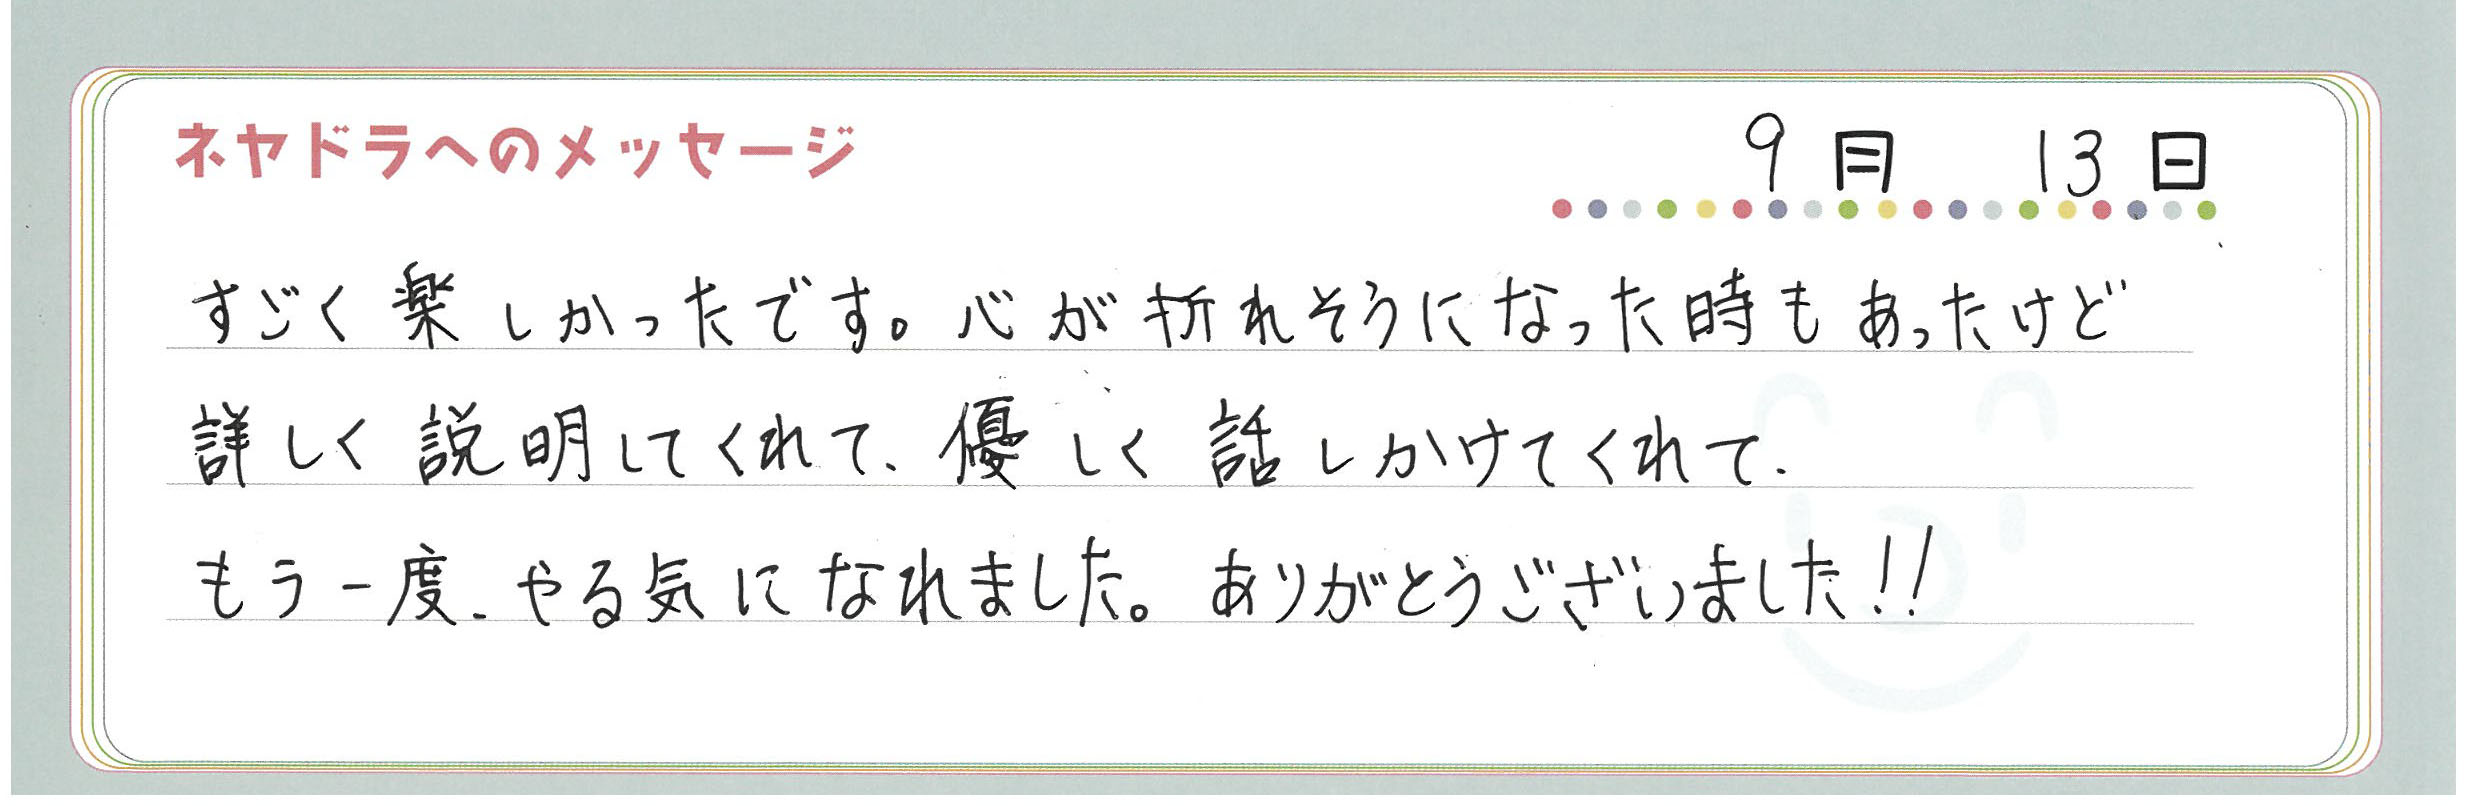 ネヤドラへのメッセージ
9月 13日
すごく楽しかったです。心が折れそうになった時もあったけど
詳しく説明してくれて、優しく話しかけてくれて、
もう一度、やる気になれました。ありがとうございました!!